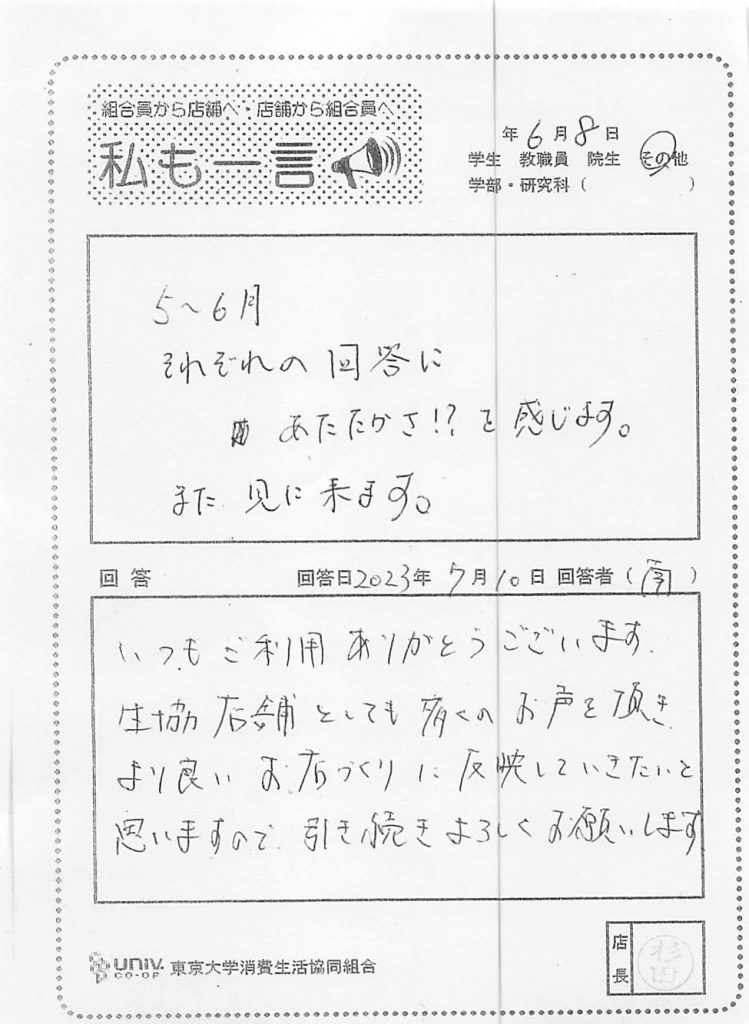 組合員から店舗へ・店舗から組合員へ
私も一言
年6月8日
学生 教職員 院生 その他
学部・研究科( )
5〜6月
それぞれの回答に
あたたかさ!?を感じます。
また見に来ます。
回答 回答日2023年7月10日 回答者( )
いつもご利用ありがとうございます.
生協店舗としても 多くの お声を頂き
より良い お店づくりに反映していきたいと
思いますので、引き続きよろしくお願いします
UNIV. CO-OP 東京大学消費生活協同組合
店長
杉田